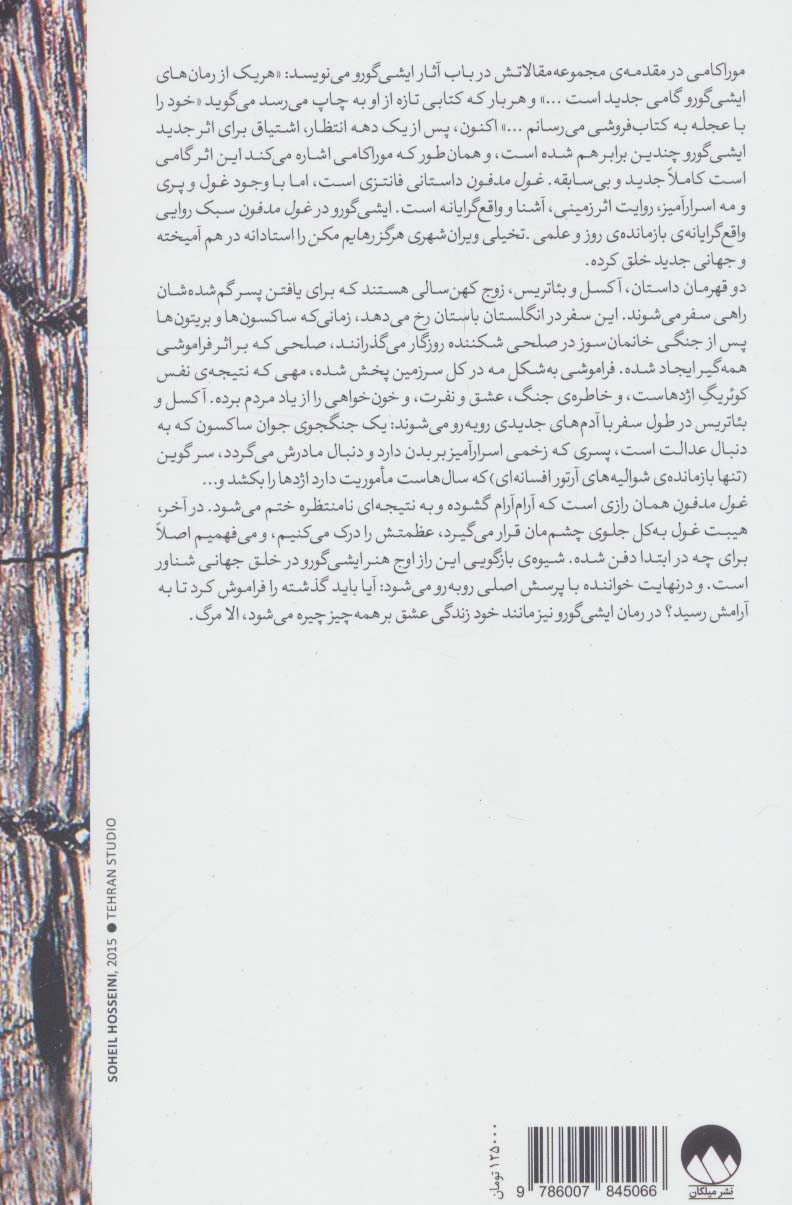 موراکامی در مقدمه‌ی مجموعه‌مقالاتش در باب آثار ایشی‌گورو می‌نویسد: «هریک از رمان‌های
ایشی‌گورو گامی جدید است ...» و هربار که کتابی تازه از او به چاپ می‌رسد می‌گوید «خود را
با عجله به کتاب‌فروشی می‌رسانم ...» اکنون، پس از یک دهه انتظار، اشتیاق برای اثر جدید
ایشی‌گورو چندین برابر هم شده است، و همان‌طور که موراکامی اشاره می‌کند این اثر گامی
است کاملاً جدید و بی‌سابقه. غول مدفون داستانی فانتزی است، اما با وجود غول و پری
و مه اسرارآمیز، روایت اثر زمینی، آشنا و واقع‌گرایانه است. ایشی‌گورو در غول مدفون سبک روایی
واقع‌گرایانه‌ی بازمانده‌ی روز و علمی ـ تخیلی ویران‌شهری هرگز رهایم مکن را استادانه در هم آمیخته
و جهانی جدید خلق کرده.
دو قهرمان داستان، آکسل و بئاتریس، زوج کهن‌سالی هستند که برای یافتن پسر گم‌شده‌شان
راهی سفر می‌شوند. این سفر در انگلستان باستان رخ می‌دهد، زمانی‌که ساکسون‌ها و بریتون‌ها
پس از جنگی خانمان‌سوز در صلحی شکننده روزگار می‌گذرانند، صلحی که بر اثر فراموشی
همه‌گیر ایجاد شده. فراموشی به‌شکل مه در کل سرزمین پخش شده، مهی که نتیجه‌ی نفس
کوئریگِ اژدهاست، و خاطره‌ی جنگ، عشق و نفرت، و خون‌خواهی را از یاد مردم برده. آکسل و
بئاتریس در طول سفر با آدم‌های جدیدی روبه‌رو می‌شوند: یک جنگجوی جوان ساکسون که به
دنبال عدالت است، پسری که زخمی اسرارآمیز بر بدن دارد و دنبال مادرش می‌گردد، سر گوین
(تنها بازمانده‌ی شوالیه‌های آرتور افسانه‌ای) که سال‌هاست مأموریت دارد اژدها را بکشد و...
غول مدفون همان رازی است که آرام‌آرام گشوده و به نتیجه‌ای نامنتظره ختم می‌شود. در آخر،
هیبت غول به‌کل جلوی چشم‌مان قرار می‌گیرد، عظمتش را درک می‌کنیم، و می‌فهمیم اصلاً
برای چه در ابتدا دفن شده. شیوه‌ی بازگویی این راز اوج هنر ایشی‌گورو در خلق جهانی شناور
است. و درنهایت خواننده با پرسش اصلی روبه‌رو می‌شود: آیا باید گذشته را فراموش کرد تا به
آرامش رسید؟ در رمان ایشی‌گورو نیز مانند خود زندگی عشق بر همه چیز چیره می‌شود، الا مرگ.
SOHEIL HOSSEINI, 2015 ● TEHRAN STUDIO
۱۲۵۰۰۰ تومان
9 786007 845066
نشر میلکان